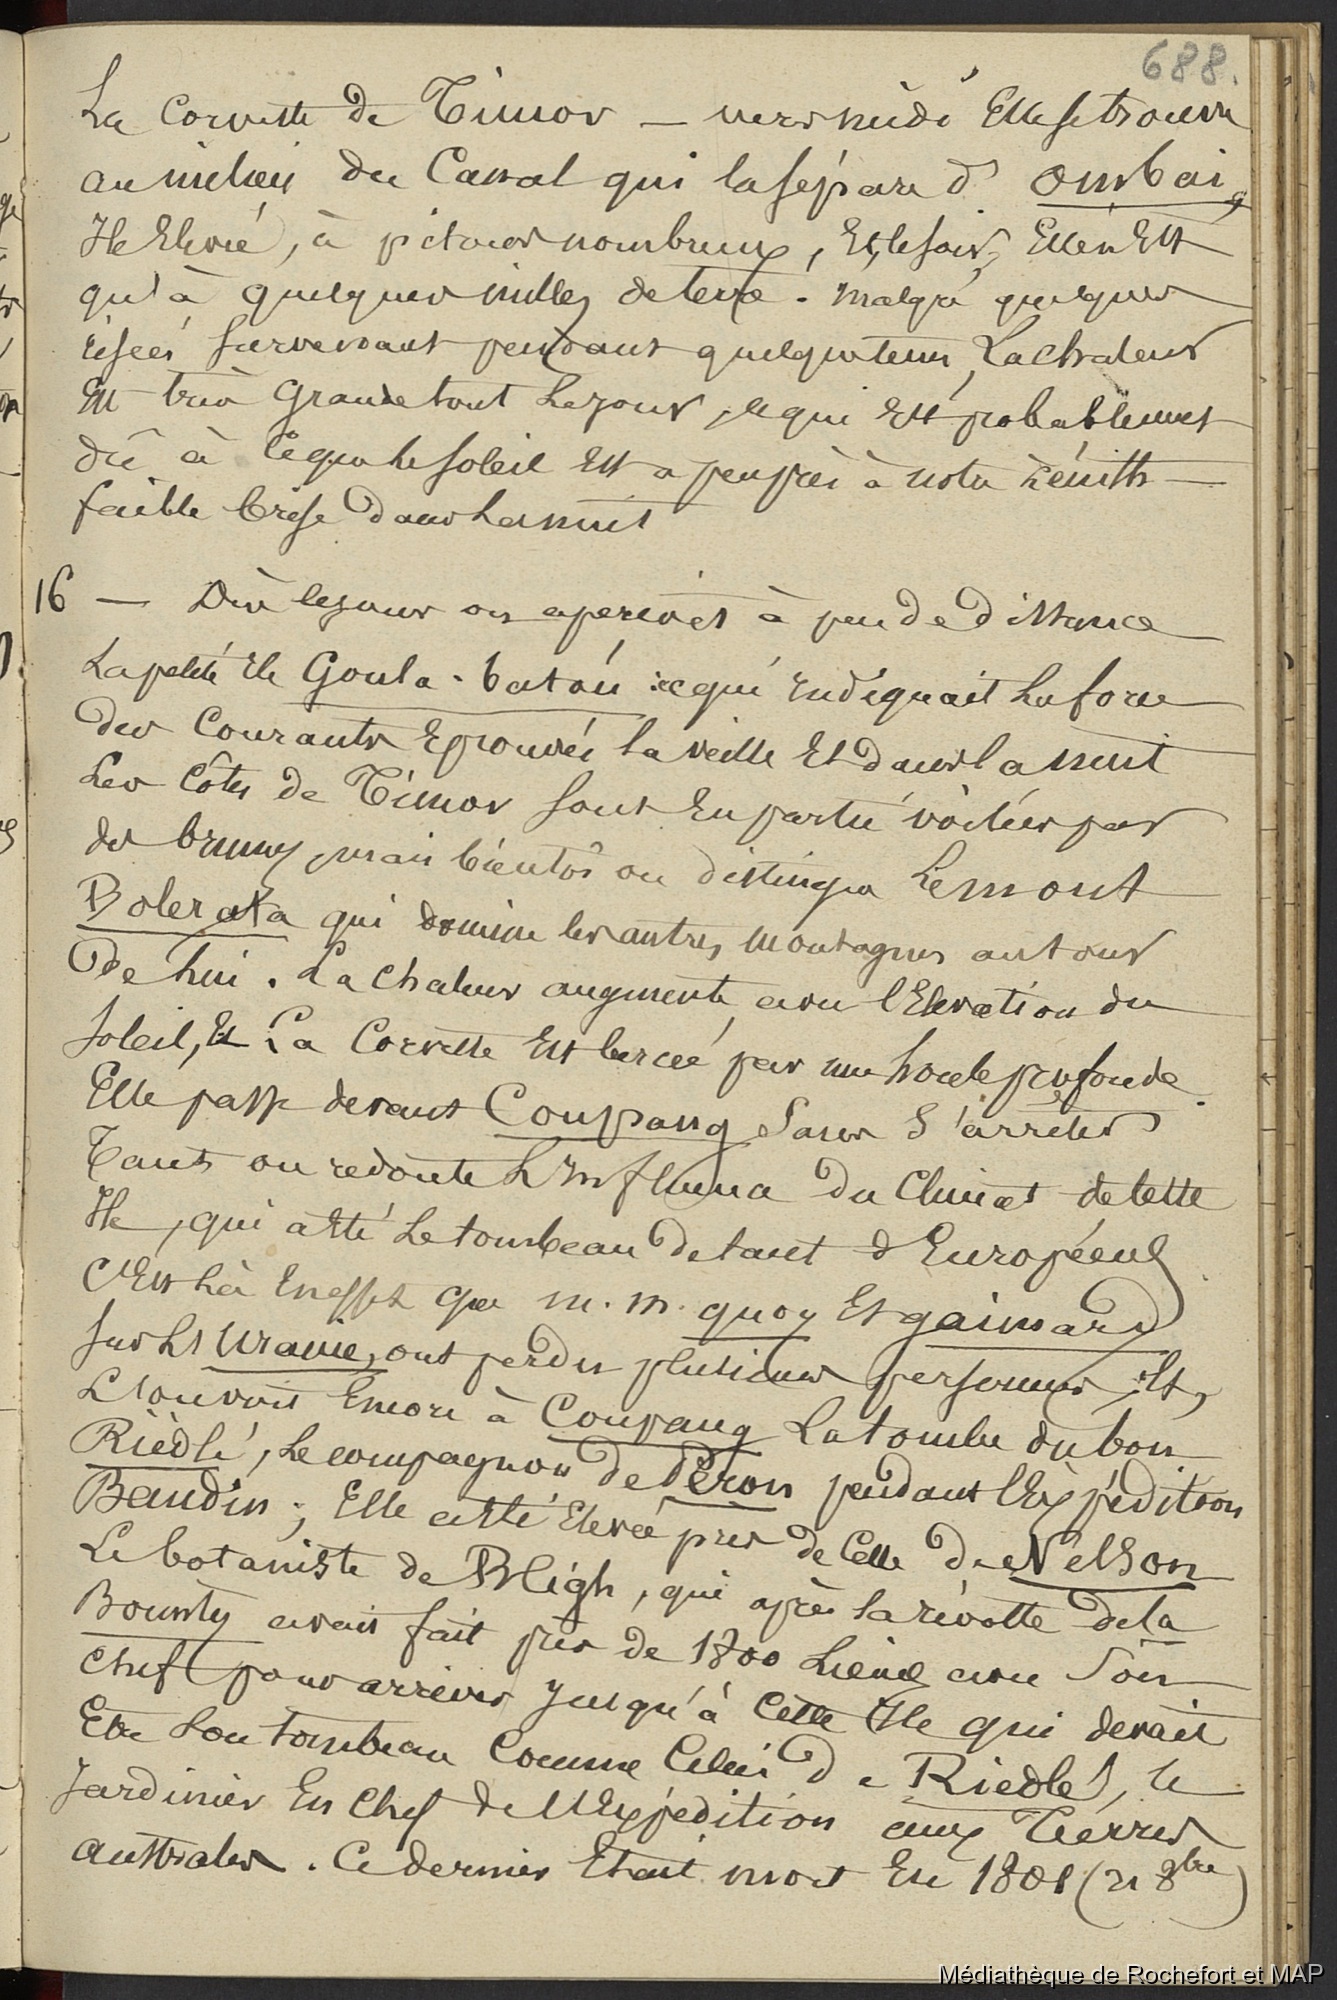 688.
La Corvette de Timor — vers midi Elle se trouva
au milieu du Canal qui la sépare d' Ombai,
Ile Elevée, à pitons nombreux, Et, le soir, Elle n'Est
qu'à quelques milles de terre. Malgré quelques
risées survenant pendant quelque tems, La chaleur
Est très Grande tout Le jour, ce qui Est probablement
dû à ce que le soleil Est a peu près à notre zénith —
faible brise dans La nuit
16 — Dès le jour on aperçoit à peu de distance
La petite Ile Goula-batou ce qui indiquait La force
des Courants Eprouvés la veille Et dans la nuit
Les Côtes de Timor sont En partie voilées par
des brumes, mais bientôt on distingua Le mont
Boleraka qui domine les autres montagnes autour
de lui. La Chaleur augmente avec l'Elevation du
soleil, Et La Corvette Est bercée par une houle profonde.
Elle passe devant Coupang Sans s'arrêter
Tant on redoute L'Influence du Climat de Cette
Ile, qui a été Le tombeau de tant d'Européens
C'Est Là En effet que M.M. quoy Et gaimard
sur L'Uranie, ont perdu plusieurs personnes, Et,
L'on voit Encore à Coupang La tombe du bon
Riedlé, Le compagnon de Péron pendant l'Expédition
Baudin; Elle a été Elevée près de Celle de Nelson
Le botaniste de Bligh, qui après la révolte de la
Bounty avait fait près de 1800 Lieues avec Son
Chef pour arriver jusqu'à Cette Ile qui devait
Etre Son tombeau Comme Celui de Riedlé, le
Jardinier En Chef de l'Expédition aux Terres
australes. Ce dernier Etait mort En 1801 (21 8bre)
Médiathèque de Rochefort et MAP